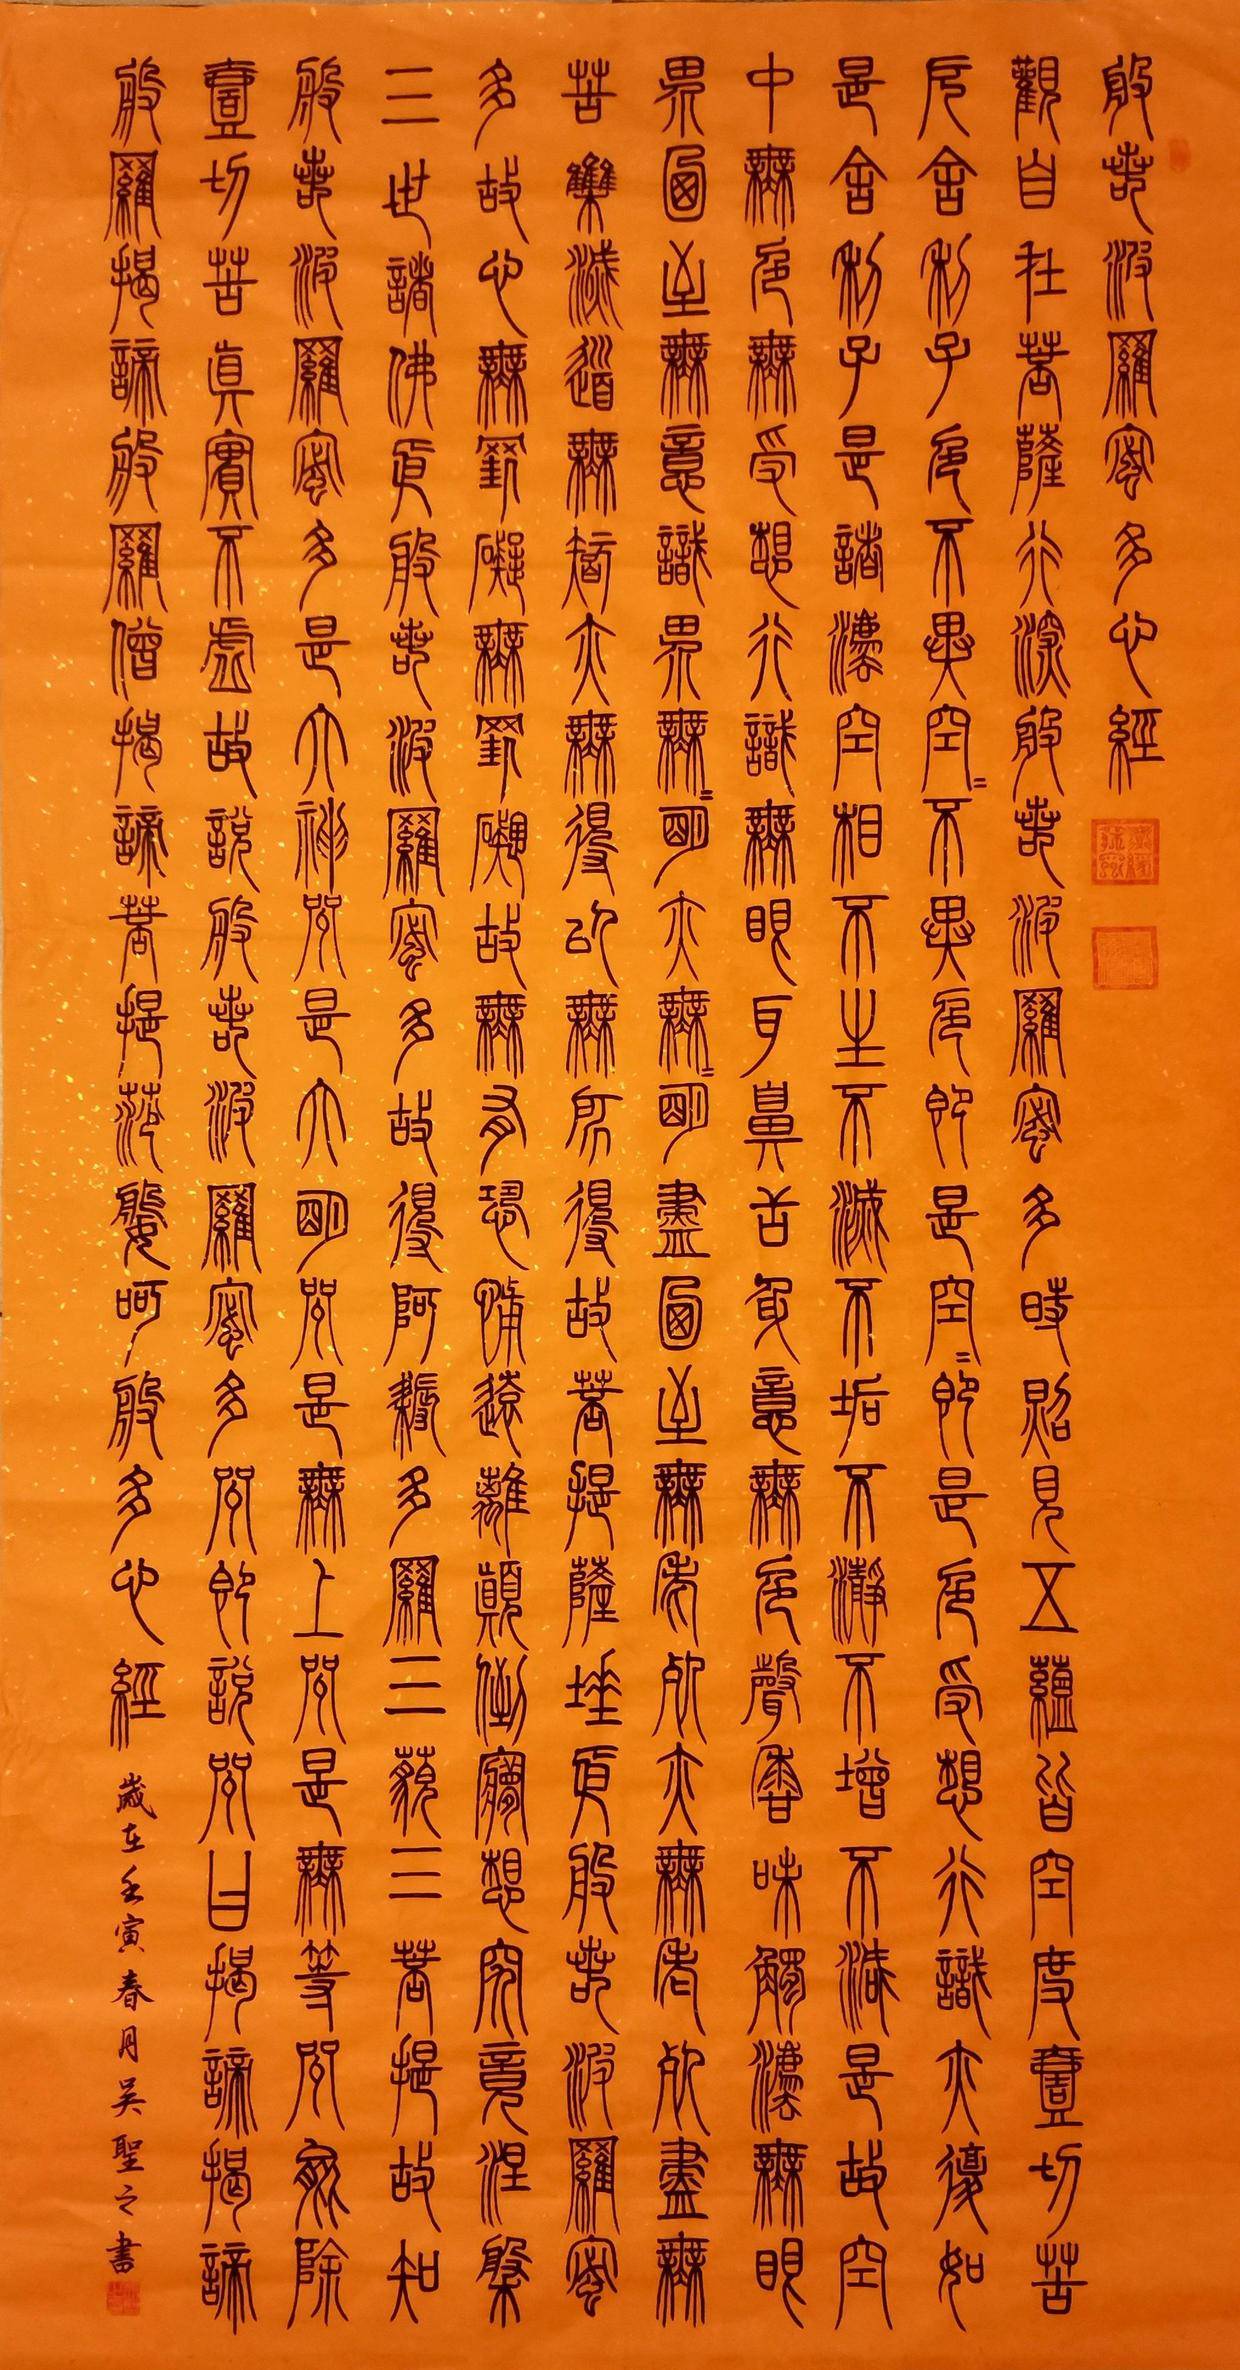 般若波羅蜜多心經
觀自在菩薩行深般若波羅蜜多時照見五蘊皆空度壹切苦
厄舍利子色不異空=不異色即是空=即是色受想行識亦復如
是舍利子是諸法空相不生不滅不垢不淨不增不減是故空
中無色無受想行識無眼耳鼻舌身意無色聲香味觸法無眼
界乃至無意識界無=明亦無=明盡乃至無老死亦無老死盡無
苦集滅道無智亦無得以無所得故菩提薩埵依般若波羅蜜
多故心無罣礙無罣礙故無有恐怖遠離顛倒夢想究竟涅槃
三世諸佛依般若波羅蜜多故得阿耨多羅三藐三菩提故知
般若波羅蜜多是大神咒是大明咒是無上咒是無等咒能除
壹切苦真實不虛故說般若波羅蜜多咒即說咒曰揭諦揭諦
般羅揭諦般羅僧揭諦菩提莎婆呵般多心經
歲在壬寅春月吳聖之書